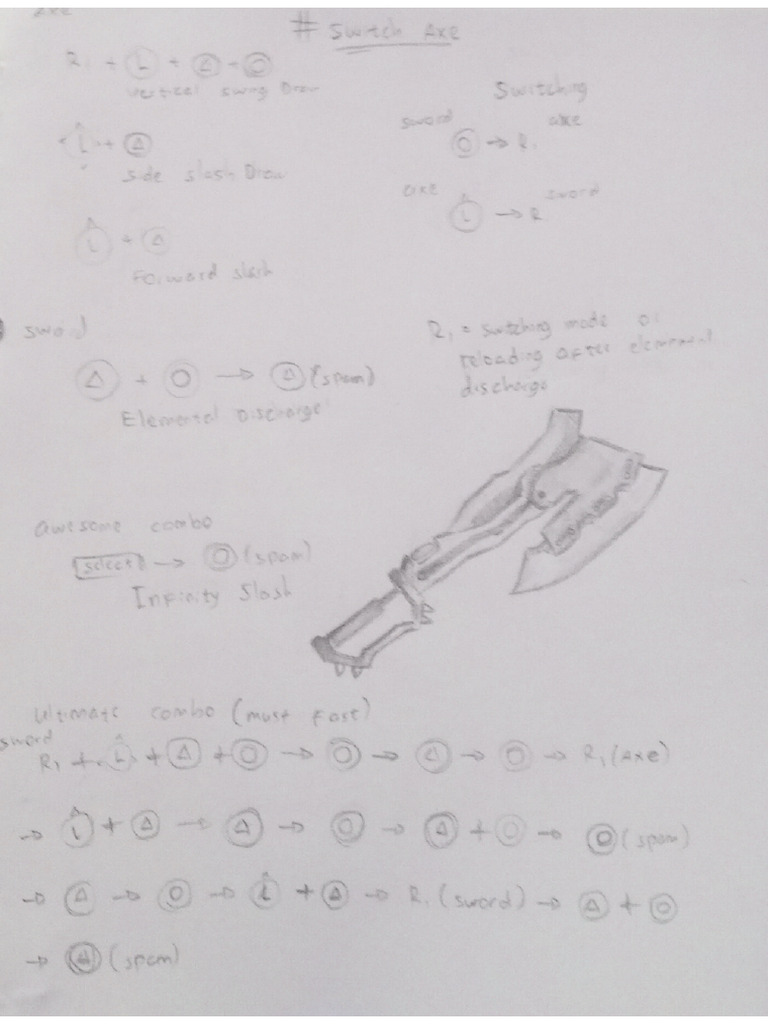 Axe
# Switch Axe
R1 + Ⓛ + △ + ○
vertical swing Draw
Switching
sword axe
○ → R1
L + △
side slash Draw
axe sword
L → R
L + △
Forward slash
sword
R1 = switching mode or
reloading after elemental
discharge
△ + ○ → △ (spam)
Elemental Discharge
awesome combo
select → ○ (spam)
Infinity Slash
Ultimate combo (must fast)
sword
R1 + L + △ + ○ → ○ → △ → ○ → R1 (Axe)
→ L + △ → △ → ○ → △ + ○ → ○ (spam)
→ △ → ○ → L + △ → R1 (sword) → △ + ○
→ △ (spam)